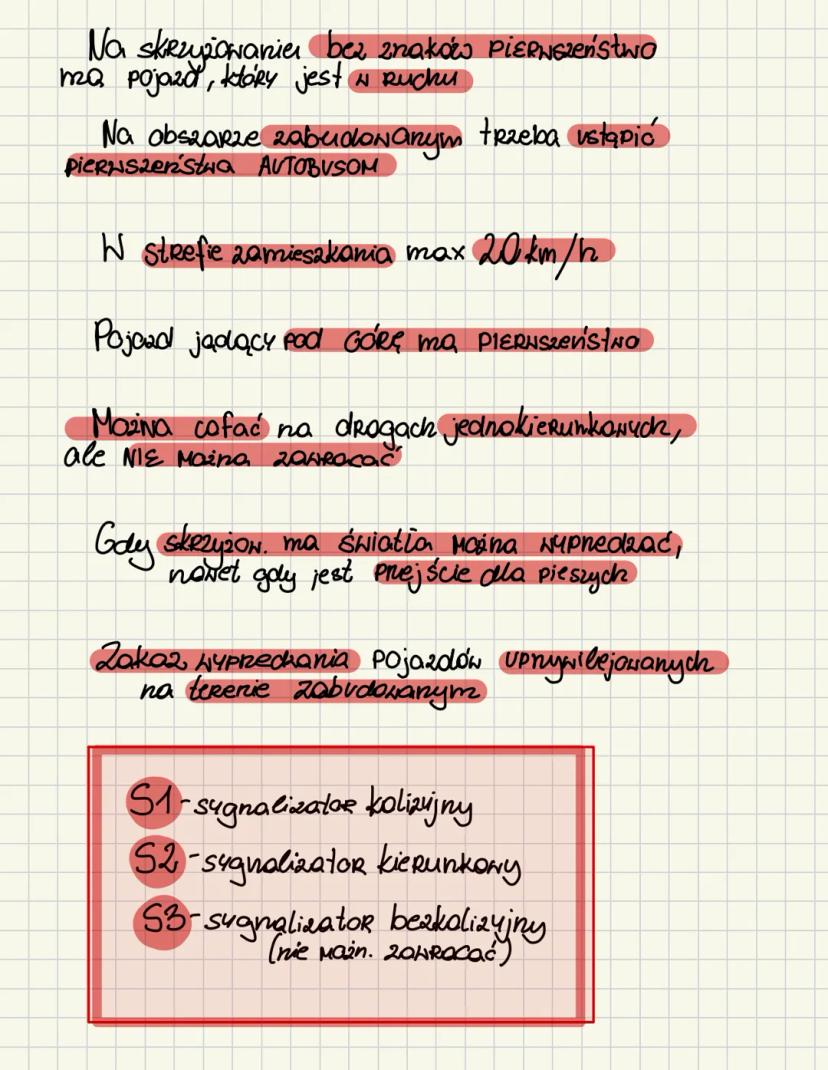 Na skrzyżowaniu bez znaków pierwszeństwo
ma pojazd, który jest w ruchu
Na obszarze zabudowanym trzeba ustąpić
pierwszeństwa AUTOBUSOM
W strefie zamieszkania max 20 km/h
Pojazd jadący POD GÓRĘ ma PIERWSZEŃSTWO
Można cofać na drogach jednokierunkowych,
ale NIE można zawracać
Gdy skrzyżow. ma światła można wyprzedzać,
nawet gdy jest przejście dla pieszych
Zakaz wyprzedzania pojazdów uprzywilejowanych
na terenie zabudowanym
S1 - sygnalizator kolizyjny
S2 - sygnalizator kierunkowy
S3 - sygnalizator bezkolizyjny
(nie możn. zawracać)